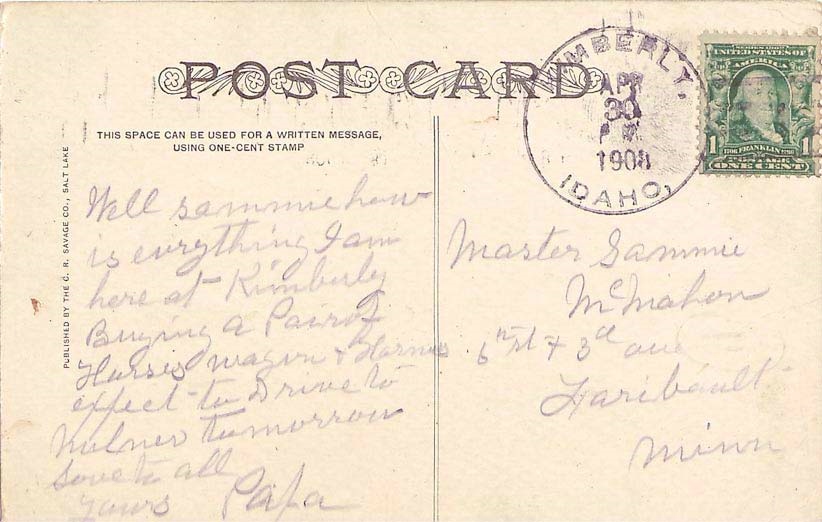 POST CARD
THIS SPACE CAN BE USED FOR A WRITTEN MESSAGE,
USING ONE-CENT STAMP
PUBLISHED BY THE C. R. SAVAGE CO., SALT LAKE
KIMBERLY,
APR
30
1908
IDAHO,
SERIES 1902
UNITED STATES OF
AMERICA
1 FRANKLIN 1
POSTAGE
ONE CENT
Well sammie how
is evrything I am
here at Kimberly
Buying a Pair of
Horses wagon & Harnes
expect to Drive to
tomorrow
Love to all
yours Papa
Master Sammie
McMahon
6th st & 3d ave
Faribault
Minn